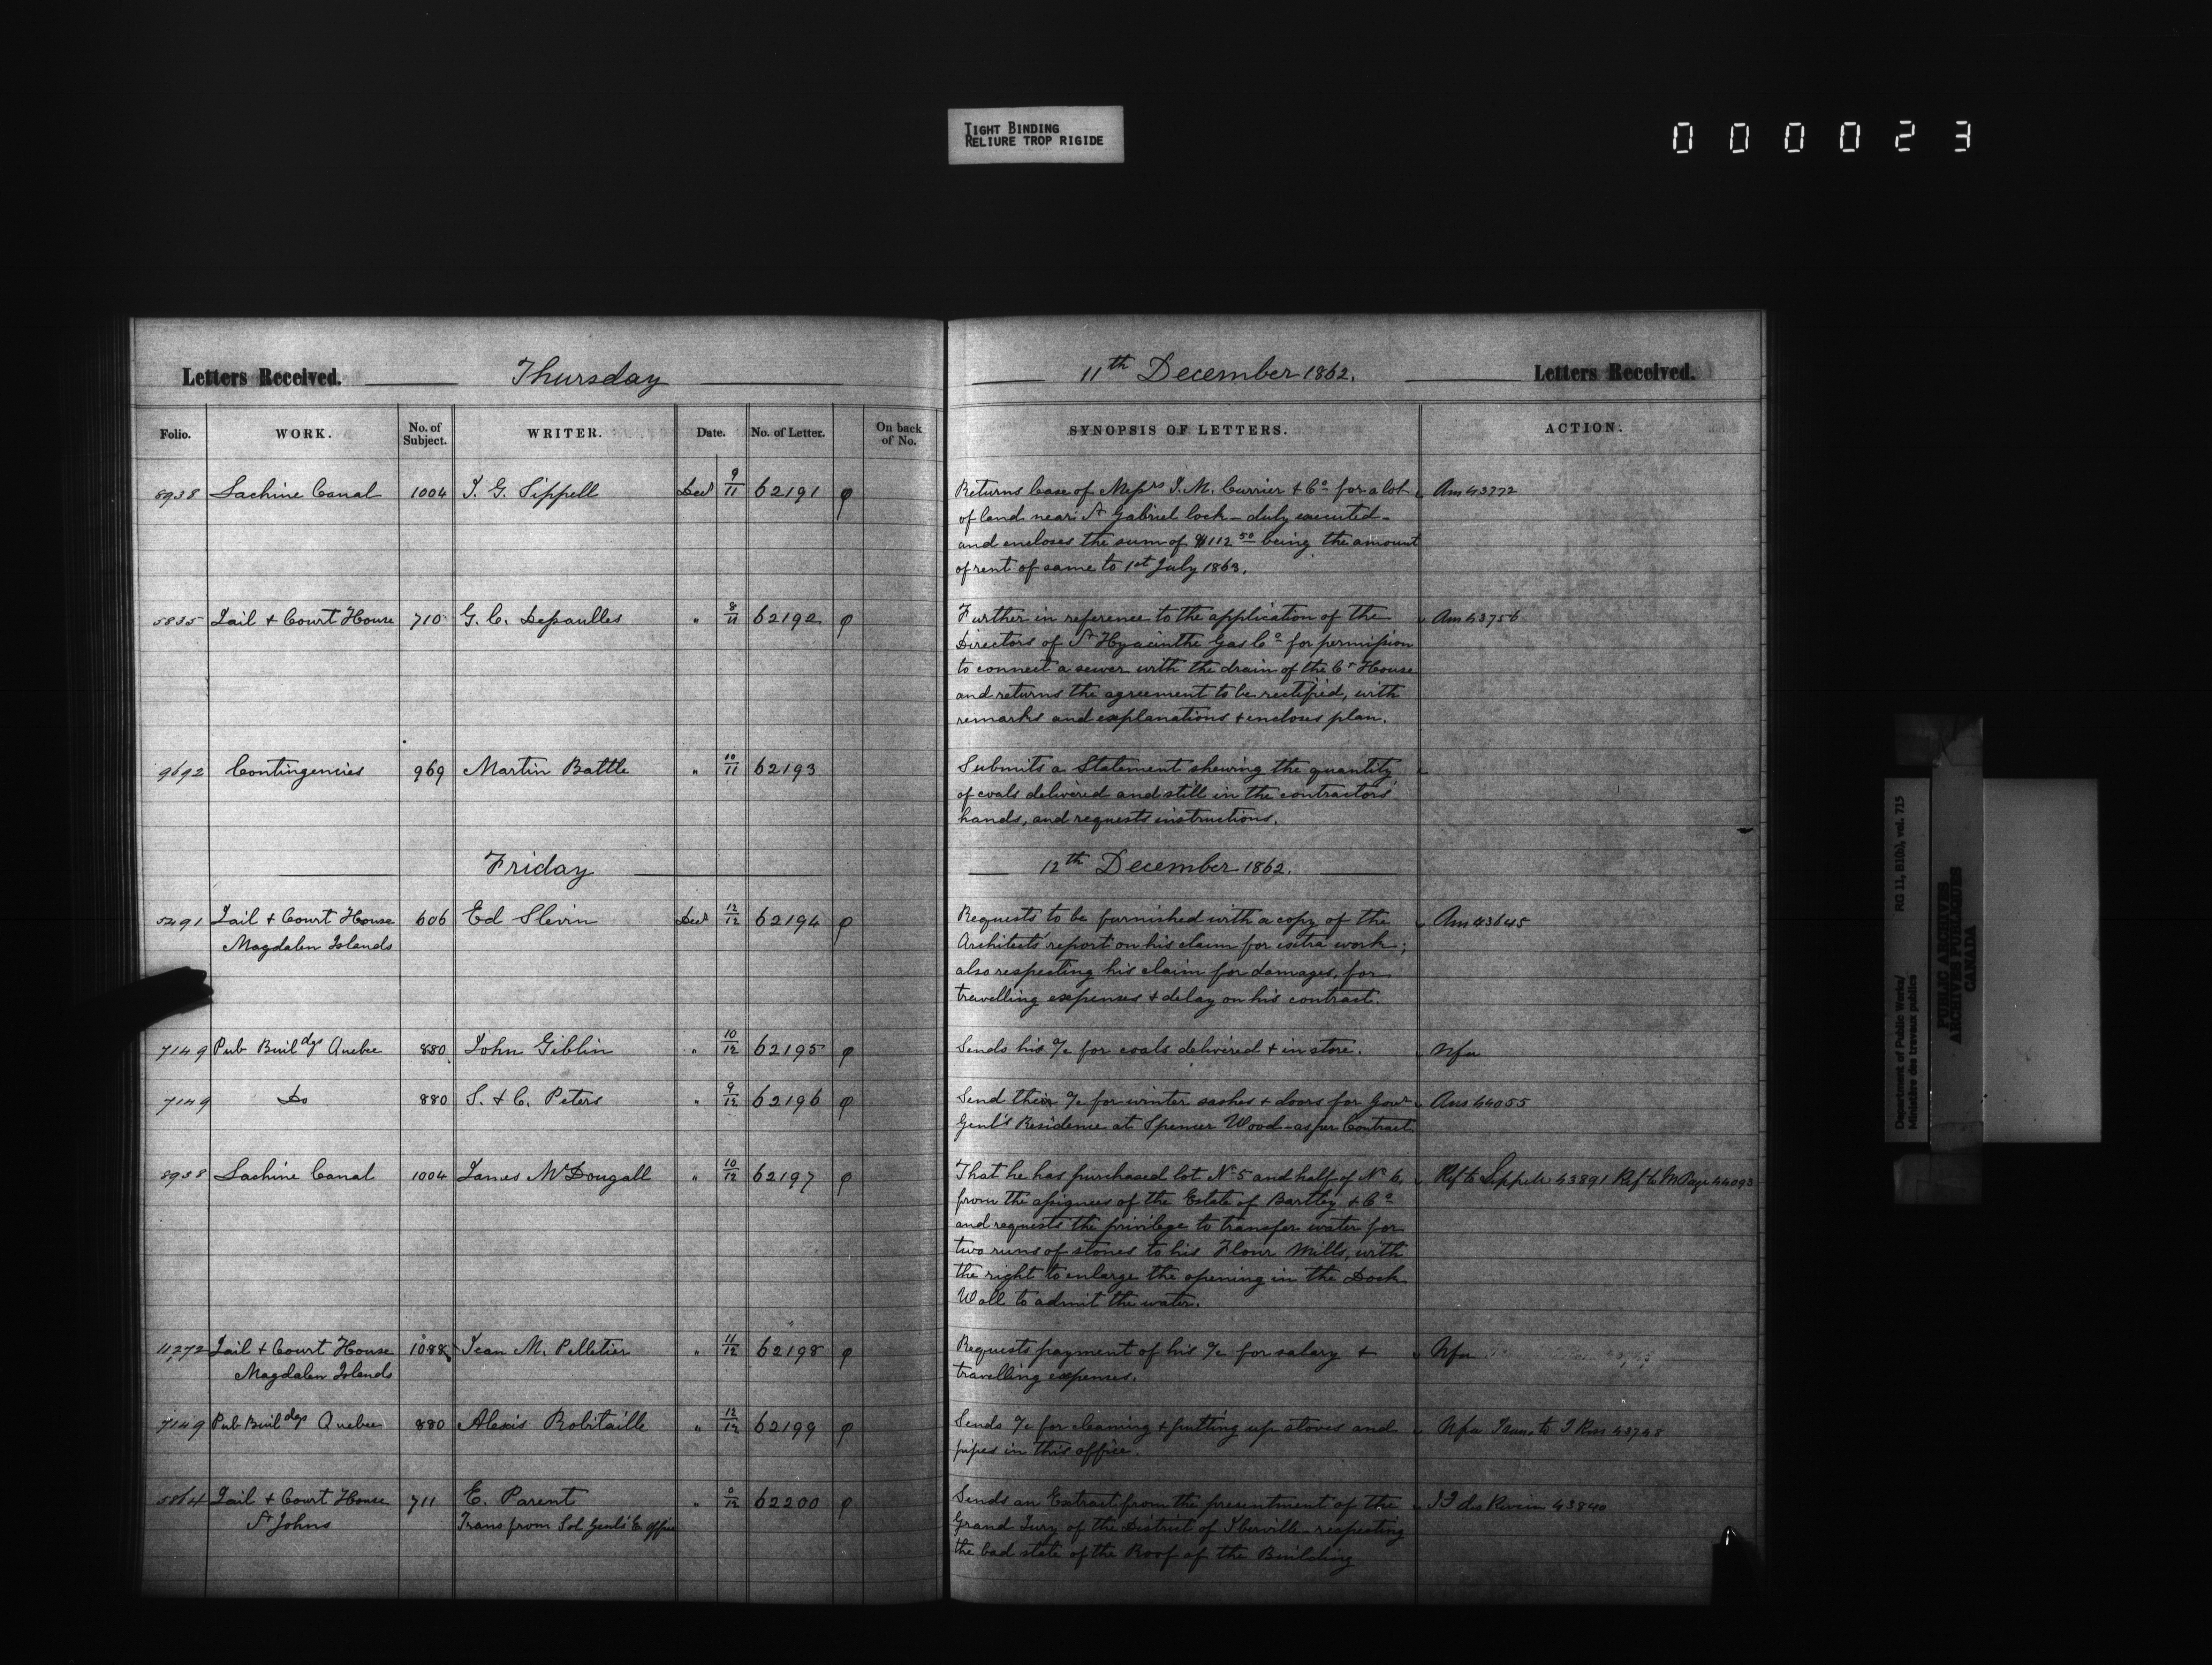 TIGHT BINDING
RELIURE TROP RIGIDE
000023
Letters Received. Thursday 11th December 1862. Letters Received.
Folio. WORK. No. of Subject. WRITER. Date. No. of Letter. On back of No. SYNOPSIS OF LETTERS. ACTION.
8938 Lachine Canal 1004 J. G. Sippell Decr 9/11 62191 φ Returns lease of Messrs J. M. Currier & Co for a lot Ans 43772
of land near St Gabriel lock – duly executed –
and encloses the sum of $112 50 being the amount
of rent of same to 1st July 1863.
5835 Jail & Court House 710 G. C. Dessaulles " 8/11 62192 φ Further in reference to the application of the Ans 43756
Directors of St Hyacinthe Gas Co for permission
to connect a sewer with the drain of the Ct House
and returns the agreement to be rectified, with
remarks and explanations & encloses plan.
9692 Contingencies 969 Martin Battle " 10/11 62193 Submits a Statement shewing the quantity
of coals delivered and still in the contractors
hands, and requests instructions.
Friday 12th December 1862.
5491 Jail & Court House 606 Ed Slevin Decr 12/12 62194 φ Requests to be furnished with a copy of the Ans 43645
Magdalen Islands Architects' report on his claim for extra work;
also respecting his claim for damages, for
travelling expenses & delay on his contract.
7149 Pub Buildgs Quebec 880 John Giblin " 10/12 62195 φ Sends his a/c for coals delivered & in store. Nfa
7149 Do 880 S. & C. Peters " 9/12 62196 φ Send their a/c for winter sashes & doors for Govr Ans 44055
Genl's Residence at Spencer Wood – as per Contract
8938 Lachine Canal 1004 James McDougall " 10/12 62197 φ That he has purchased lot No 5 and half of No 6, Ref to Sippell 43891 Ref to M Page 44093
from the assignees of the Estate of Bartley & Co
and requests the privilege to transfer water for
two runs of stones to his Flour Mills, with
the right to enlarge the opening in the Dock
Wall to admit the water.
11,272 Jail & Court House 1088 Jean M. Pelletier " 11/12 62198 φ Requests payment of his a/c for salary & Nfa
Magdalen Islands travelling expenses.
7149 Pub Buildgs Quebec 880 Alexis Robitaille " 12/12 62199 φ Sends a/c for cleaning & putting up stoves and Nfa Trans to J Rose 43748
pipes in this office.
5864 Jail & Court House 711 E. Parent " 0/12 62200 φ Sends an Extract from the presentment of the 43840
St Johns Trans from Sol Genl's E. office Grand Jury of the District of Iberville respecting
the bad state of the Roof of the Building
Department of Public Works/ RG 11, B1(b), vol. 715
Ministère des travaux publics
PUBLIC ARCHIVES
ARCHIVES PUBLIQUES
CANADA